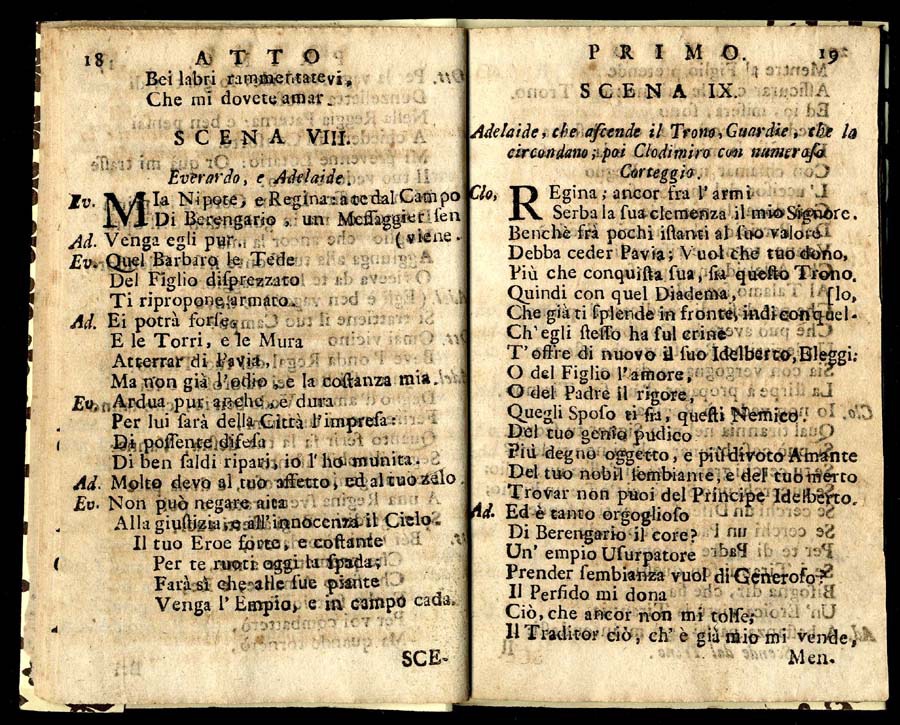 18 ATTO
Bei labri rammentatevi,
Che mi dovete amar.
SCENA VIII.
Everardo, e Adelaide.
Ev. MIa Nipote, e Regina: a te dal Campo
Di Berengario, un Messaggier sen
Ad. Venga egli pur. (viene.
Ev. Quel Barbaro le Tede
Del Figlio disprezzato
Ti ripropone armato.
Ad. Ei potrà forse
E le Torri, e le Mura
Atterrar di Pavia,
Ma non già l'odio, e la costanza mia.
Ev. Ardua pur anche, e dura
Per lui sarà della Città l'impresa:
Di possente difesa
Di ben saldi ripari, io l'ho munita.
Ad. Molto devo al tuo affetto, ed al tuo zelo
Ev. Non può negare aita
Alla giustizia, e all'innocenza il Cielo.
Il tuo Eroe forte, e costante
Per te ruoti oggi la spada;
Farà sì che alle sue piante
Venga l'Empio, e in campo cada.
SCE-
PRIMO. 19
SCENA IX.
Adelaide, che ascende il Trono, Guardie, che la
circondano; poi Clodimiro con numeroso
Corteggio.
Clo, REgina; ancor fra l'armi
Serba la sua clemenza il mio Signore.
Benchè frà pochi istanti al suo valore
Debba ceder Pavia; Vuol che tuo dono,
Più che conquista sua, sia questo Trono.
Quindi con quel Diadema, [lo,
Che già ti splende in fronte, indi con quel-
Ch'egli stesso ha sul crine
T'offre di nuovo il suo Idelberto, Eleggi:
O del Figlio l'amore,
O del Padre il rigore,
Quegli Sposo ti sia, questi Nemico.
Del tuo genio pudico
Più degno oggetto, e più divoto Amante
Del tuo nobil sembiante, e del tuo merto
Trovar non puoi del Principe Idelberto.
Ad. Ed è tanto orgoglioso
Di Berengario il core?
Un' empio Usurpatore
Prender sembianza vuol di Generoso?
Il Perfido mi dona
Ciò, che ancor non mi tolse,
Il Traditor ciò, ch' è già mio mi vende,
Men-